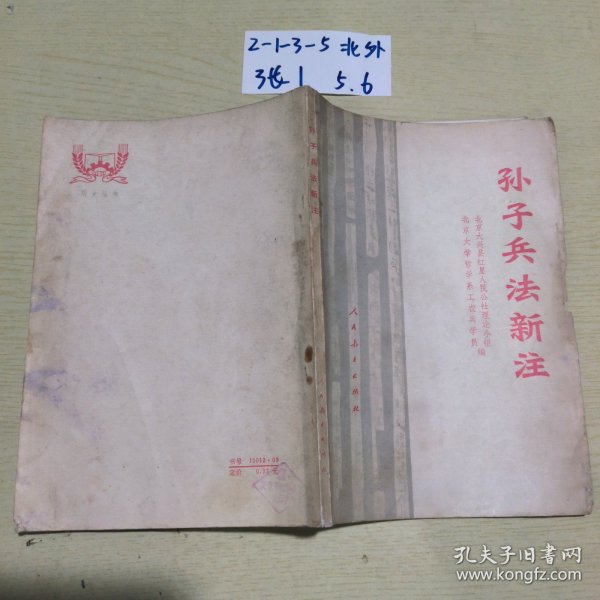 2-1-3-5 北外
3长1 5.6
孙子兵法新注
孙子兵法新注
北京大兴县红星人民公社理论小组
北京大学哲学系工农兵学员 编
人民教育出版社
人民教育出版社
书号 13012·09
定价 0.75 元
孔夫子旧书网
www.kongfz.com